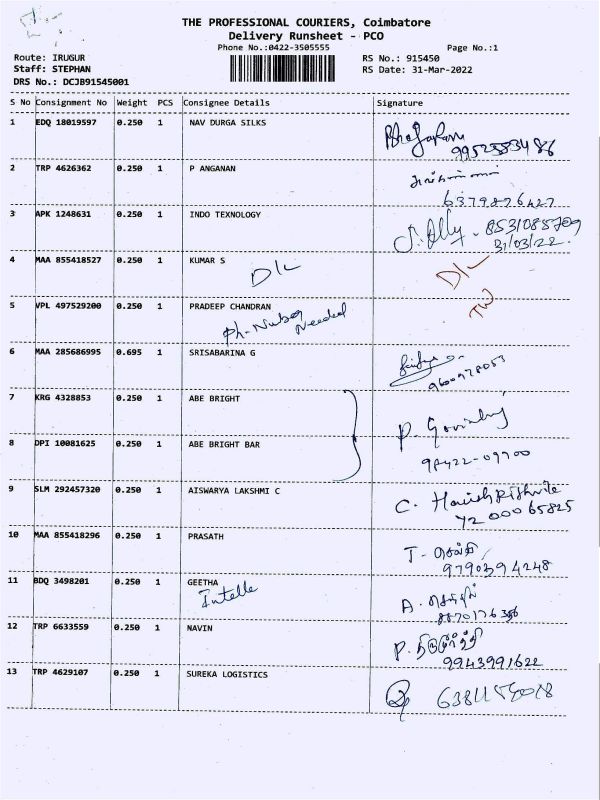 THE PROFESSIONAL COURIERS, Coimbatore
Delivery Runsheet - PCO
Phone No.:0422-3505555 Page No.:1
Route: IRUGUR RS No.: 915450
Staff: STEPHAN RS Date: 31-Mar-2022
DRS No.: DCJB91545001
S No Consignment No Weight PCS Consignee Details Signature
1 EDQ 18019597 0.250 1 NAV DURGA SILKS
2 TRP 4626362 0.250 1 P ANGANAN
6379876427
3 APK 1248631 0.250 1 INDO TEXNOLOGY
8531085709
31/03/22.
4 MAA 855418527 0.250 1 KUMAR S
D/L D/L
5 VPL 497529200 0.250 1 PRADEEP CHANDRAN
Ph-Number Needed
6 MAA 285686995 0.695 1 SRISABARINA G
9600978053
7 KRG 4328853 0.250 1 ABE BRIGHT
P. Govind
8 DPI 10081625 0.250 1 ABE BRIGHT BAR
98422-09700
9 SLM 292457320 0.250 1 AISWARYA LAKSHMI C
C.
72 000 65825
10 MAA 855418296 0.250 1 PRASATH
T - செல்வி
9790394248
11 BDQ 3498201 0.250 1 GEETHA
Intelle A. செல்வி
8870176386
12 TRP 6633559 0.250 1 NAVIN
P. திருமூர்த்தி
9943991622
13 TRP 4629107 0.250 1 SUREKA LOGISTICS